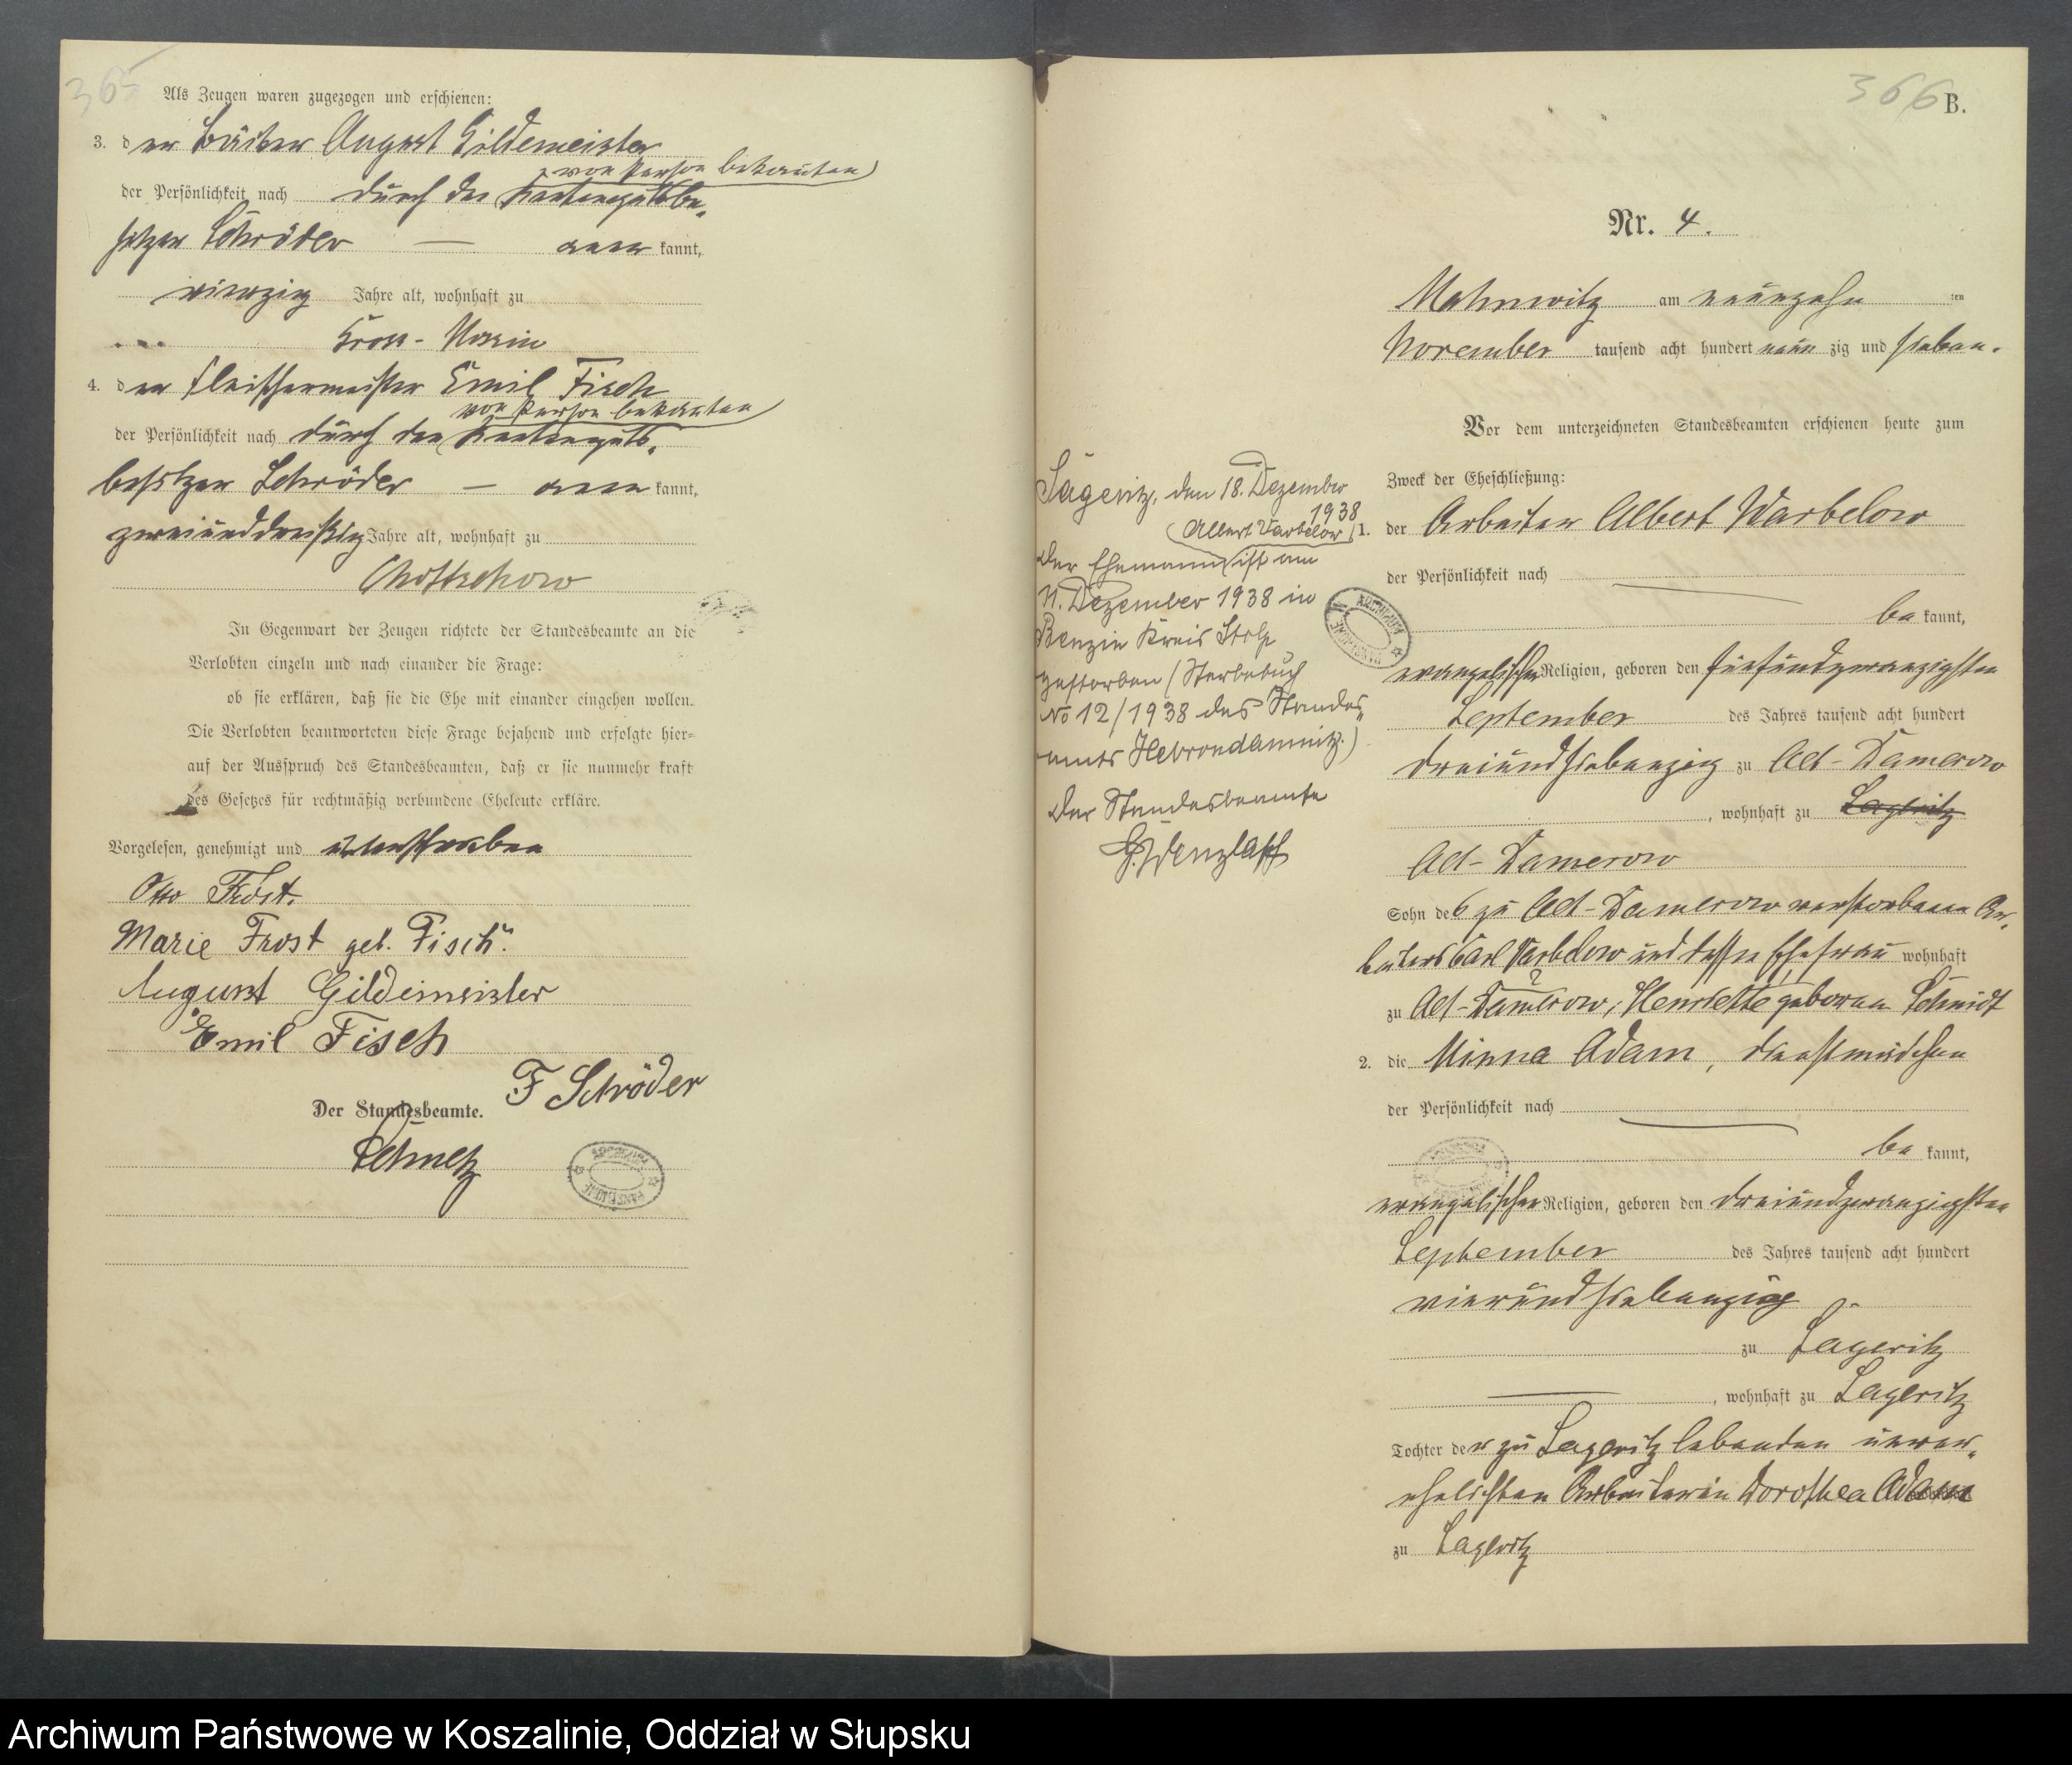 365
Als Zeugen waren zugezogen und erschienen:
3. der Bäcker August Gildemeister
von Person bekannten
der Persönlichkeit nach durch den Rentengutsbe-
sitzer Schröder — aner kannt,
vierzig Jahre alt, wohnhaft zu
Gross-Nossin
4. der Fleischermeister Emil Fisch
von Person bekannten
der Persönlichkeit nach durch den Rentenguts-
besitzer Schröder — aner kannt,
zweiunddreißig Jahre alt, wohnhaft zu
Chottschow
In Gegenwart der Zeugen richtete der Standesbeamte an die
Verlobten einzeln und nach einander die Frage:
ob sie erklären, daß sie die Ehe mit einander eingehen wollen.
Die Verlobten beantworteten diese Frage bejahend und erfolgte hier-
auf der Ausspruch des Standesbeamten, daß er sie nunmehr kraft
des Gesetzes für rechtmäßig verbundene Eheleute erkläre.
Vorgelesen, genehmigt und unterschrieben
Otto Frost.
Marie Frost geb. Fisch.
August Gildemeister
Emil Fisch
F Schröder
Der Standesbeamte.
Schmetz
366 B.
Nr. 4.
Mahnwitz am neunzehn ten
November tausend acht hundert neun zig und sieben.
Vor dem unterzeichneten Standesbeamten erschienen heute zum
Zweck der Eheschließung:
1. der Arbeiter Albert Warbelow
der Persönlichkeit nach
be kannt,
evangelischer Religion, geboren den fünfundzwanzigsten
September des Jahres tausend acht hundert
dreiundsiebenzig zu Alt-Damerow
, wohnhaft zu Lageritz
Alt-Damerow
Sohn des zu Alt-Damerow verstorbenen Ar-
beiters Carl Warbelow und dessen Ehefrau wohnhaft
zu Alt-Damerow, Henriette geborene Schmidt
2. die Minna Adam, Dienstmädchen
der Persönlichkeit nach
be kannt,
evangelischer Religion, geboren den dreiundzwanzigsten
September des Jahres tausend acht hundert
vierundsiebenzig
zu Lageritz
, wohnhaft zu Lageritz
Tochter der zu Lageritz lebenden unver-
ehelichten Arbeiterin Dorothea Adam
zu Lageritz
Sageritz, den 18. Dezember
1938
Albert Varbelow
Der Ehemann ist am
11. Dezember 1938 in
Benzin Kreis Stolp
gestorben (Sterbebuch
No 12/1938 des Standes-
amts Hebrondamnitz.)
Der Standesbeamte
G. Wenzlaff
ARCHIWUM PAŃSTWOWE
Archiwum Państwowe w Koszalinie, Oddział w Słupsku